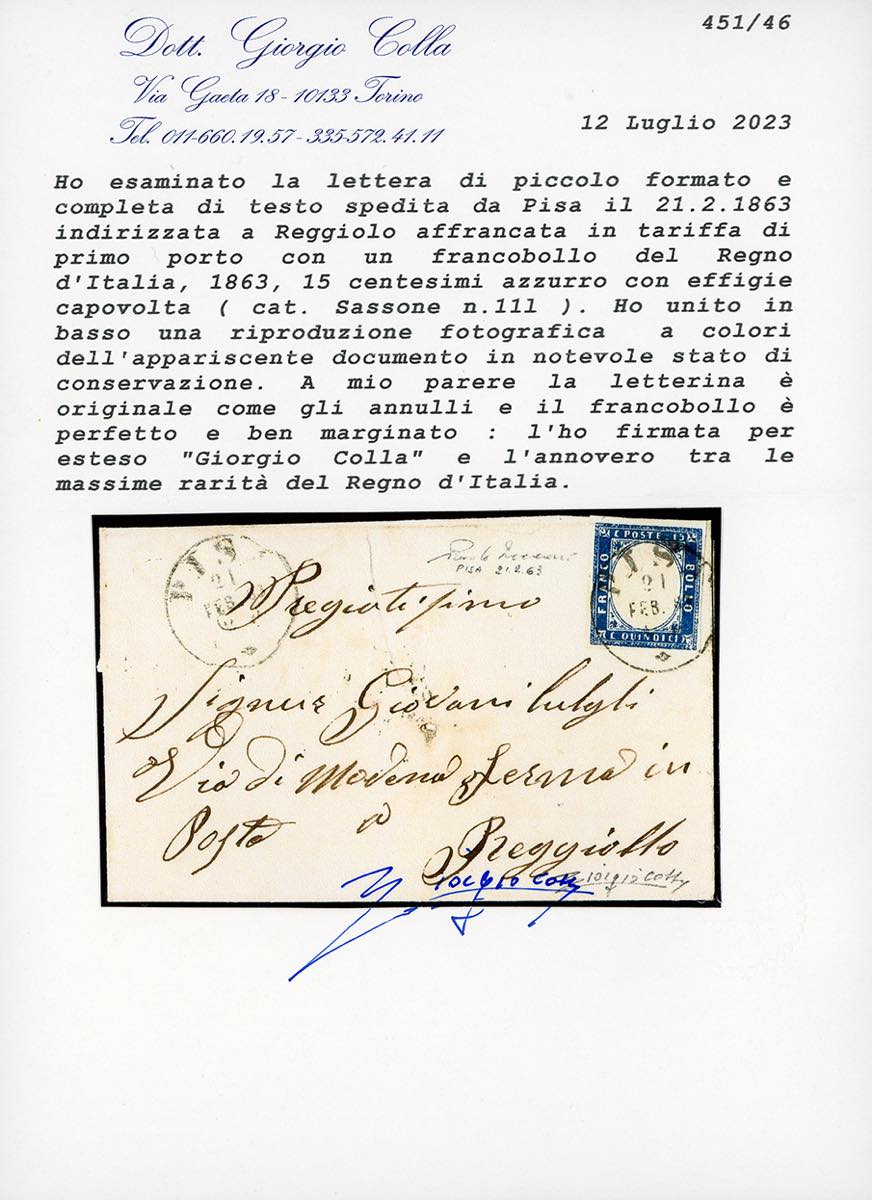 451/46
Dott. Giorgio Colla
Via Gaeta 18 - 10133 Torino
Tel. 011-660.19.57 - 335-572.41.11
12 Luglio 2023
Ho esaminato la lettera di piccolo formato e
completa di testo spedita da Pisa il 21.2.1863
indirizzata a Reggiolo affrancata in tariffa di
primo porto con un francobollo del Regno
d'Italia, 1863, 15 centesimi azzurro con effigie
capovolta ( cat. Sassone n.11l ). Ho unito in
basso una riproduzione fotografica a colori
dell'appariscente documento in notevole stato di
conservazione. A mio parere la letterina è
originale come gli annulli e il francobollo è
perfetto e ben marginato : l'ho firmata per
esteso "Giorgio Colla" e l'annovero tra le
massime rarità del Regno d'Italia.
PIS
21
FEB.
PISA 21.2.63
C POSTE 15
FRANCO
BOLLO
C QUINDICI
PIS
21
FEB.
Pregiatisimo
Signur Giovani
Via di Modena ferma in
Posta a
Reggiollo
Giorgio Colla
Giorgio Colla